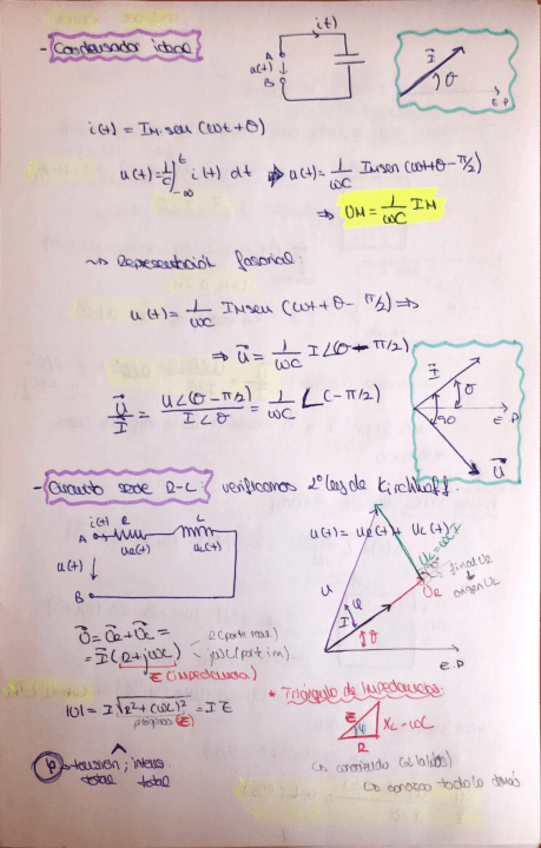 - Condensador ideal
i(t)
A
u(t)
B
I⃗
θ
E.P
i(t) = IM·sen (ωt+θ)
u(t) = 1/C ∫_{-∞}^{t} i(t) dt ⇒ u(t) = 1/ωC IM sen (ωt+θ-π/2)
⇒ UM = 1/ωC IM
Representación fasorial:
u(t) = 1/ωC IM sen (ωt+θ-π/2) ⇒
⇒ U⃗ = 1/ωC I∠(θ-π/2)
U⃗/I⃗ = U∠(θ-π/2)/I∠θ = 1/ωC ∠(-π/2)
I⃗
θ
90
E.P
U⃗
- Circuito serie R-L: verificamos 2º ley de Kirchhoff.
i(t) R L
A
uR(t) uL(t)
u(t)
B
u(t) = uR(t) + uL(t)
UL=ωLI
final UR
origen UL
UR
U
φ
I
θ
E.P
U⃗ = U⃗R + U⃗L =
= I⃗ (R+jωL)
R (parte real)
jωL (parte im)
Z (impedancia)
|U| = I √R²+(ωL)² = I Z
(Z)
* Triángulo de Impedancias:
Z
φ
XL=ωL
R
φ tensión; intens.
total total
conociendo (2 lados)
conozco todo lo demás